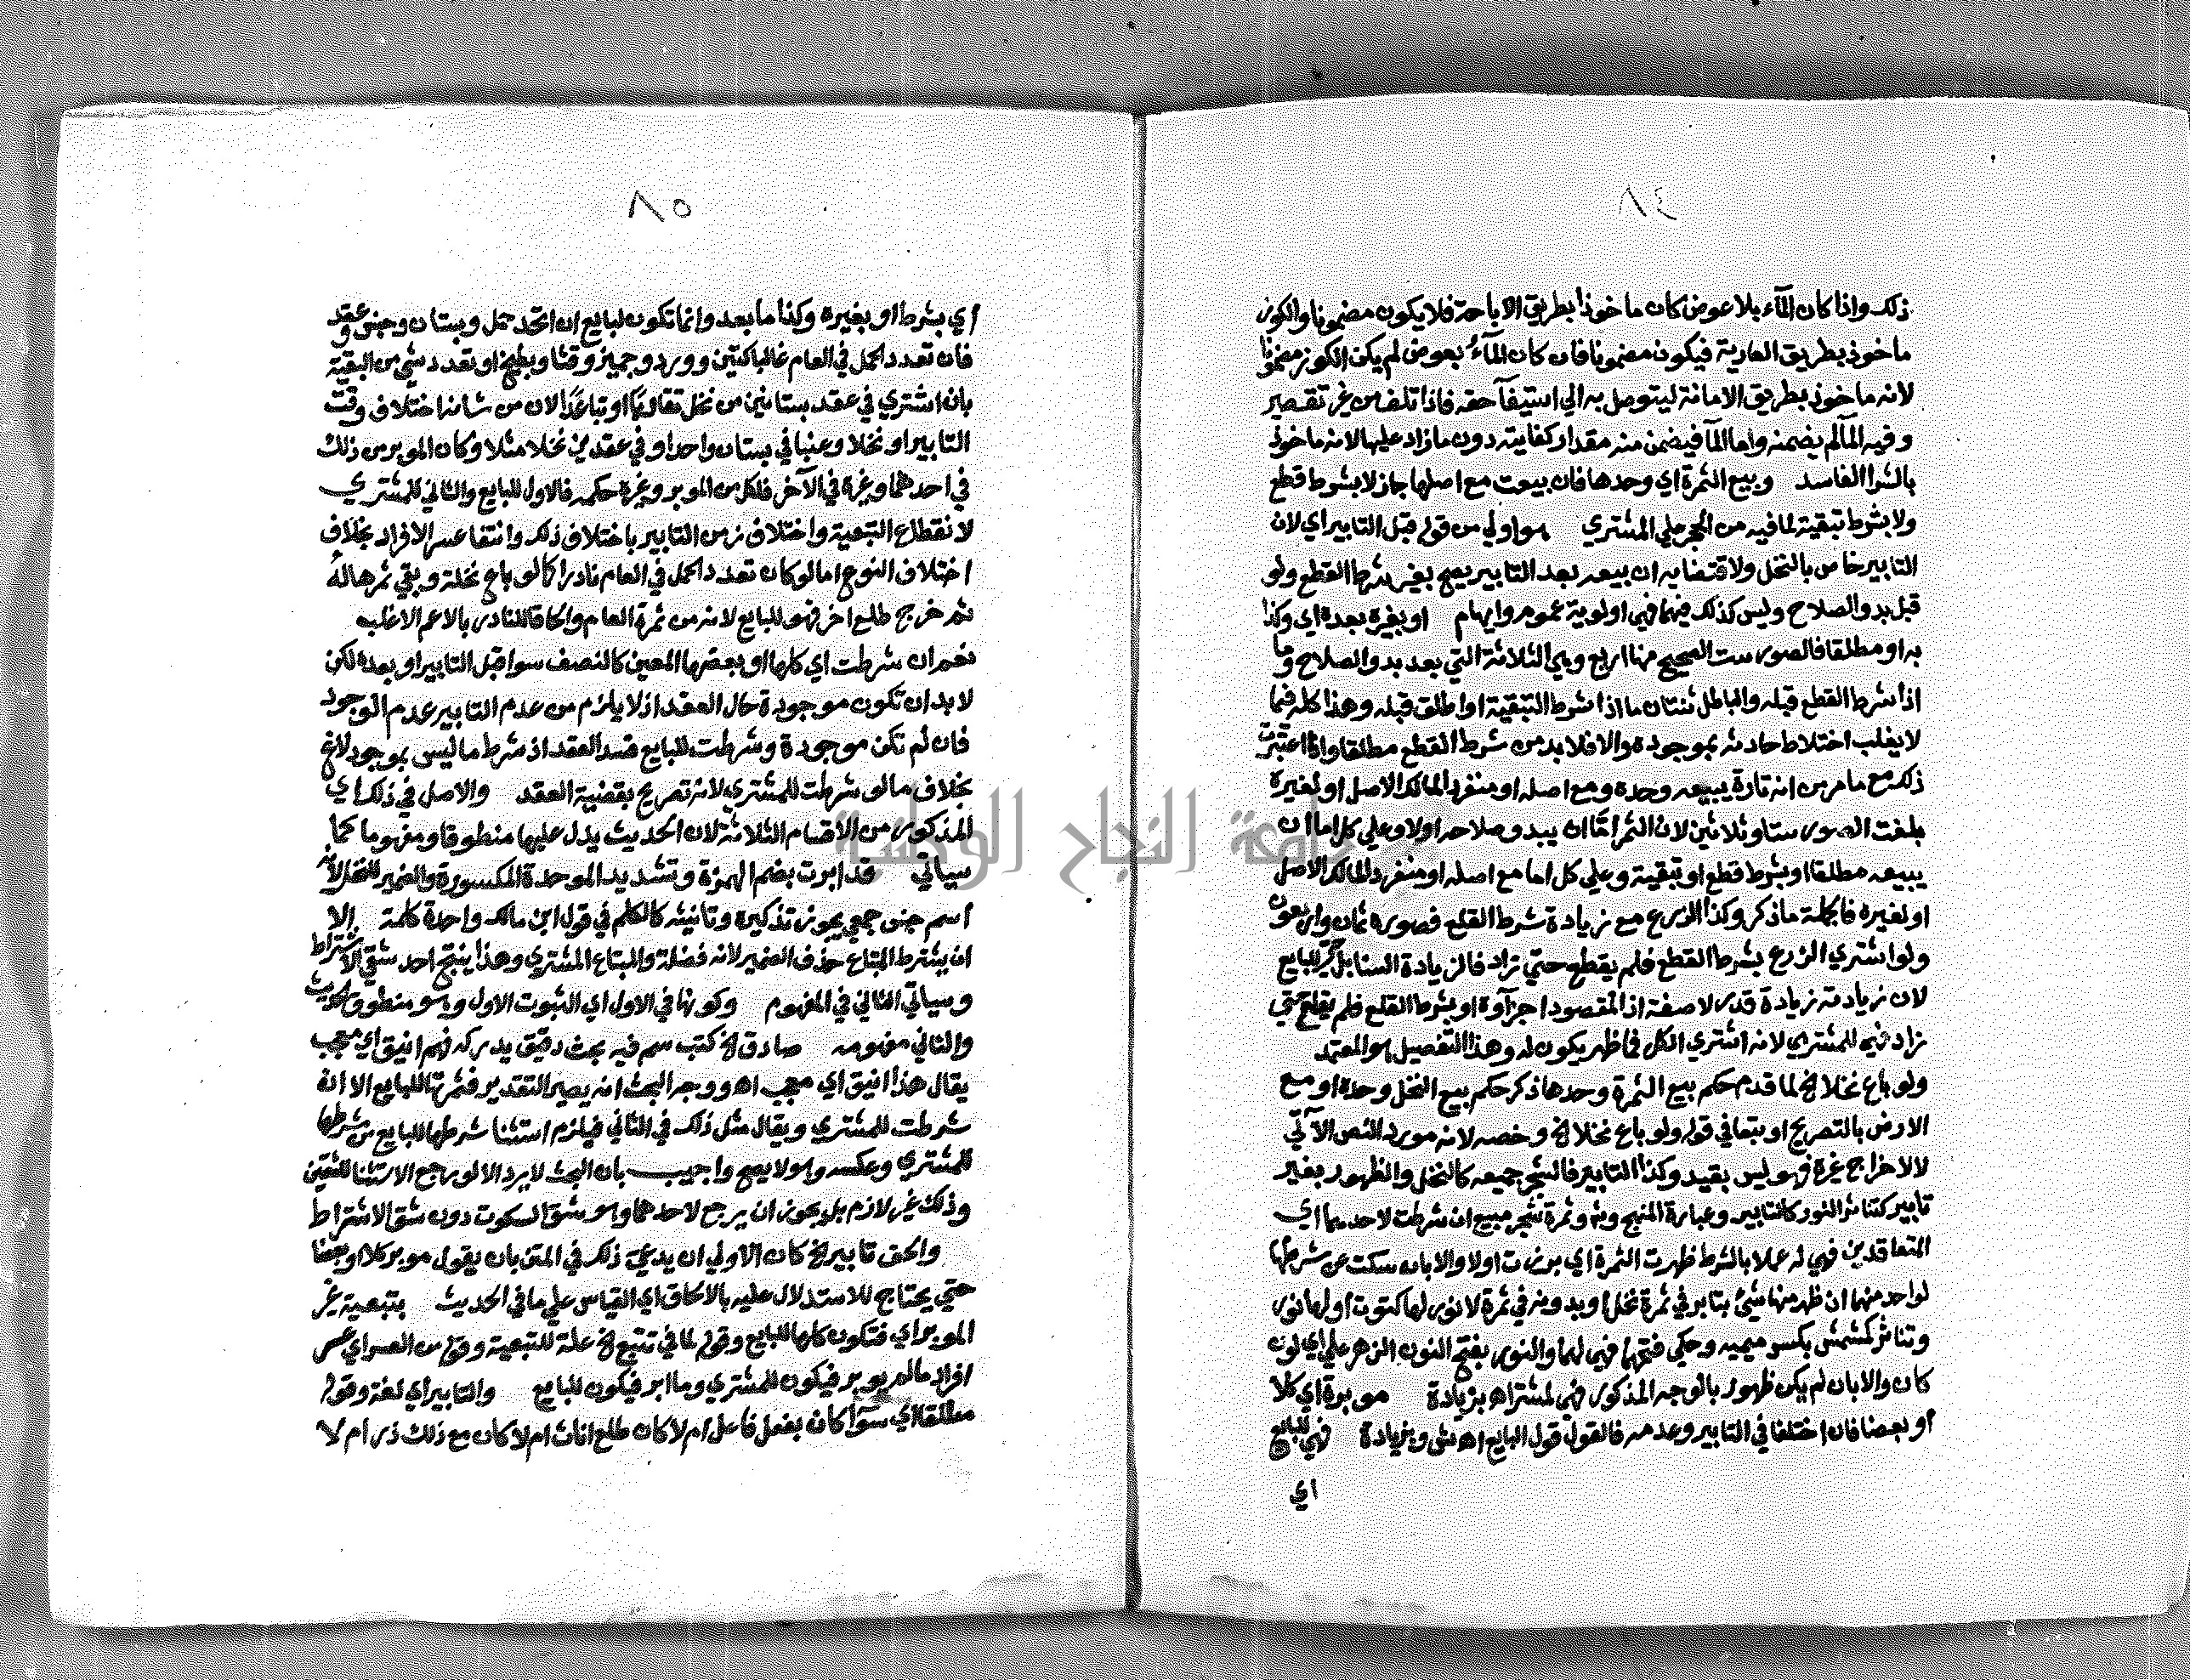 ٨٤
ذلك واذا كان المآء بلا عوض كان ماخوذا بطريق الاباحة فلا يكون مضمونا والكوز
ماخوذ بطريق العارية فيكون مضمونا فان كان المآء بعوض لم يكن الكوز مضمونا
لانه ماخوذ بطريق الامانة ليتوصل به الي استيفآ حقه فاذا تلف من غير تقصير
وفيه المآ لم يضمنه واما المآ فيضمن منه مقدار كفايته دون ما زاد عليها لانه ماخوذ
بالشرا الفاسد وبيع الثمرة اي وحدها فان بيعت مع اصلها جاز لا بشرط قطع
ولا بشرط تبقية لما فيه من الحجر علي المشتري هو اولي من قوله قبل التابير اي لان
التابير خاص بالنخل ولاقتضايه ان بيعه بعد التابير يصح بغير شرط القطع ولو
قبل بدو الصلاح وليس كذلك فيهما فهي اولوية عموم وايهام او بغيره بعده اي وكذا
به او مطلقا فالصور ست الصحيح منها اربع وهي الثلاثة التي بعد بدو الصلاح وما
اذا شرط القطع قبله والباطل ثنتان ما اذا شرط التبقية او اطلق قبله وهذا كله فيما
لا يغلب اختلاط حادثه بموجوده والا فلا بد من شرط القطع مطلقا واذا اعتبرت
ذلك مع ما مر من انه تارة يبيعه وحده ومع اصله او منفردا لمالك الاصل او لغيره
بلغت الصور ستا وثلاثين لان الثمر امّا ان يبدو صلاحه اولا وعلي كل اما ان
يبيعه مطلقا او بشرط قطع او تبقية وعلي كل اما مع اصله او منفردا لمالك الاصل
او لغيره فالجملة ما ذكر وكذا الزرع مع زيادة شرط القلع فصوره ثمان واربعون
ولو اشتري الزرع بشرط القطع فلم يقطع حتي زاد فالزيادة السنابل للبايع
لان زيادته زيادة قدر لا صفة اذ المقصود اجزآوه او بشرط القلع فلم يقلع حتي
زاد فهي للمشتري لانه اشتري الكل فما ظهر يكون له وهذا التفصيل هو المعتمد
ولو باع نخلا الخ لما قدم حكم بيع الثمرة وحدها ذكر حكم بيع النخل وحده او مع
الارض بالتصريح او تبعا في قوله ولو باع نخلا الخ وخصه لانه مورد النص الآتي
لا لاخراج غيره فهو ليس بقيد وكذا التابير فالشجر جميعه كالنخل والظهور بغير
تابير كتناثر النور كالتابير وعبارة المنهج وثمرة شجر مبيع ان شرطت لاحدهما اي
المتعاقدين فهي له عملا بالشرط ظهرت الثمرة اي برزت اولا والا بان سكت عن شرطها
لواحد منهما ان ظهر منها شئ بتابر في ثمرة نخل او بدونه في ثمرة لا نور لها كتوت او لها نور
وتناثر كمشمش بكسر ميميه وحكي فتحهما فهي لها والنور بفتح النون الزهر علي اي لون
كان والا بان لم يكن ظهور بالوجه المذكور فهي لمشتر اه بزيادة موبرة اي كلا
او بعضا فان اختلفا في التابير وعدمه فالقول قول البايع اه وبزيادة فهي للبايع
اي
٨٥
اي بشرط او بغيره وكذا ما بعد وانما تكون للبايع ان اتحد حمل وبستان وجنس وعقد
فان تعدد الحمل في العام غالبا كتين وورد وجميز وقثا وبطيخ او تعدد شي من البقية
بان اشتري في عقد بستانين من نخل تقاربا او تباعدا لان من شانه اختلاف وقت
التابير او نخلا وعنبا في بستان واحد او في عقدين نخلا مثلا وكان الموبر من ذلك
في احدهما وغيره في الآخر فلكل من الموبر وغيره حكمه فالاول للبايع والثاني للمشتري
لانقطاع التبعية واختلاف زمن التابير باختلاف ذلك وانتفا عسر الافراد بخلاف
اختلاف النوع اما لو كان تعدد الحمل في العام نادرا كالو باع نخلة وبقي ثمرها له
ثم خرج طلع اخر فهو للبايع لانه من ثمرة العام والحاقا للنادر بالاعم الاغلب
نعم ان شرطت اي كلها او بعضها المعين كالنصف سوا قبل التابير او بعده لكن
لا بد ان تكون موجودة حال العقد اذ لا يلزم من عدم التابير عدم الوجود
فان لم تكن موجودة وشرطت للبايع فسد العقد اذ شرط ما ليس بموجود لاغ
بخلاف ما لو شرطت للمشتري لانه تصريح بقضية العقد والاصل في ذلك اي
المذكور من الاقسام الثلاثة لان الحديث يدل عليها منطوقا ومفهوما كما
سياتي قد ابرت بضم الهمزة وتشديد الموحدة المكسورة والضمير للنخل لانه
اسم جنس جمعي يجوز تذكيره وتانيثه كالكلم في قول ابن مالك واحده كلمة الا
ان يشترط المبتاع حذف الضمير لانه فضلة والمبتاع المشتري وهذا ينتج احد شقي الاشتراط
وسياتي الثاني في المفهوم وكونها في الاول اي الثبوت الاول وهو منطوق الحديث
والثاني مفهومه صادق الخ كتب سم فيه بحث دقيق يدركه فهم انيق اي معجب
يقال هذا انيق اي معجب اه ووجه البحث انه يصير التقدير فثمرتها للبايع الا ان
شرطت للمشتري ويقال مثل ذلك في الثاني فيلزم استثنا شرطها للبايع من شرطها
للمشتري وعكسه وهو لا يصح واجيب بان البحث لا يرد الا لو رجع الاستثنا للشقين
وذلك غير لازم بل يجوز ان يرجع لاحدهما وهو شق السكوت دون شق الاشتراط
والحق تابير الخ كان الاولي ان يدعي ذلك في المتن بان يقول موبر كلا او بعضا
حتي يحتاج للاستدلال عليه بالالحاق اي القياس علي ما في الحديث بتبعية غير
الموبر اي فتكون كلها للبايع وقوله لما في تتبع الخ علة للتبعية وقوله من العسر اي عسر
افراد مالم يوبر فيكون للمشتري وما ابر فيكون للبايع والتابير اي لغة وقوله
مطلقا اي سوآ كان بفعل فاعل ام لا كان طلع اناث ام لا كان مع ذلك ذر ام لا
جامعة النجاح الوطنية